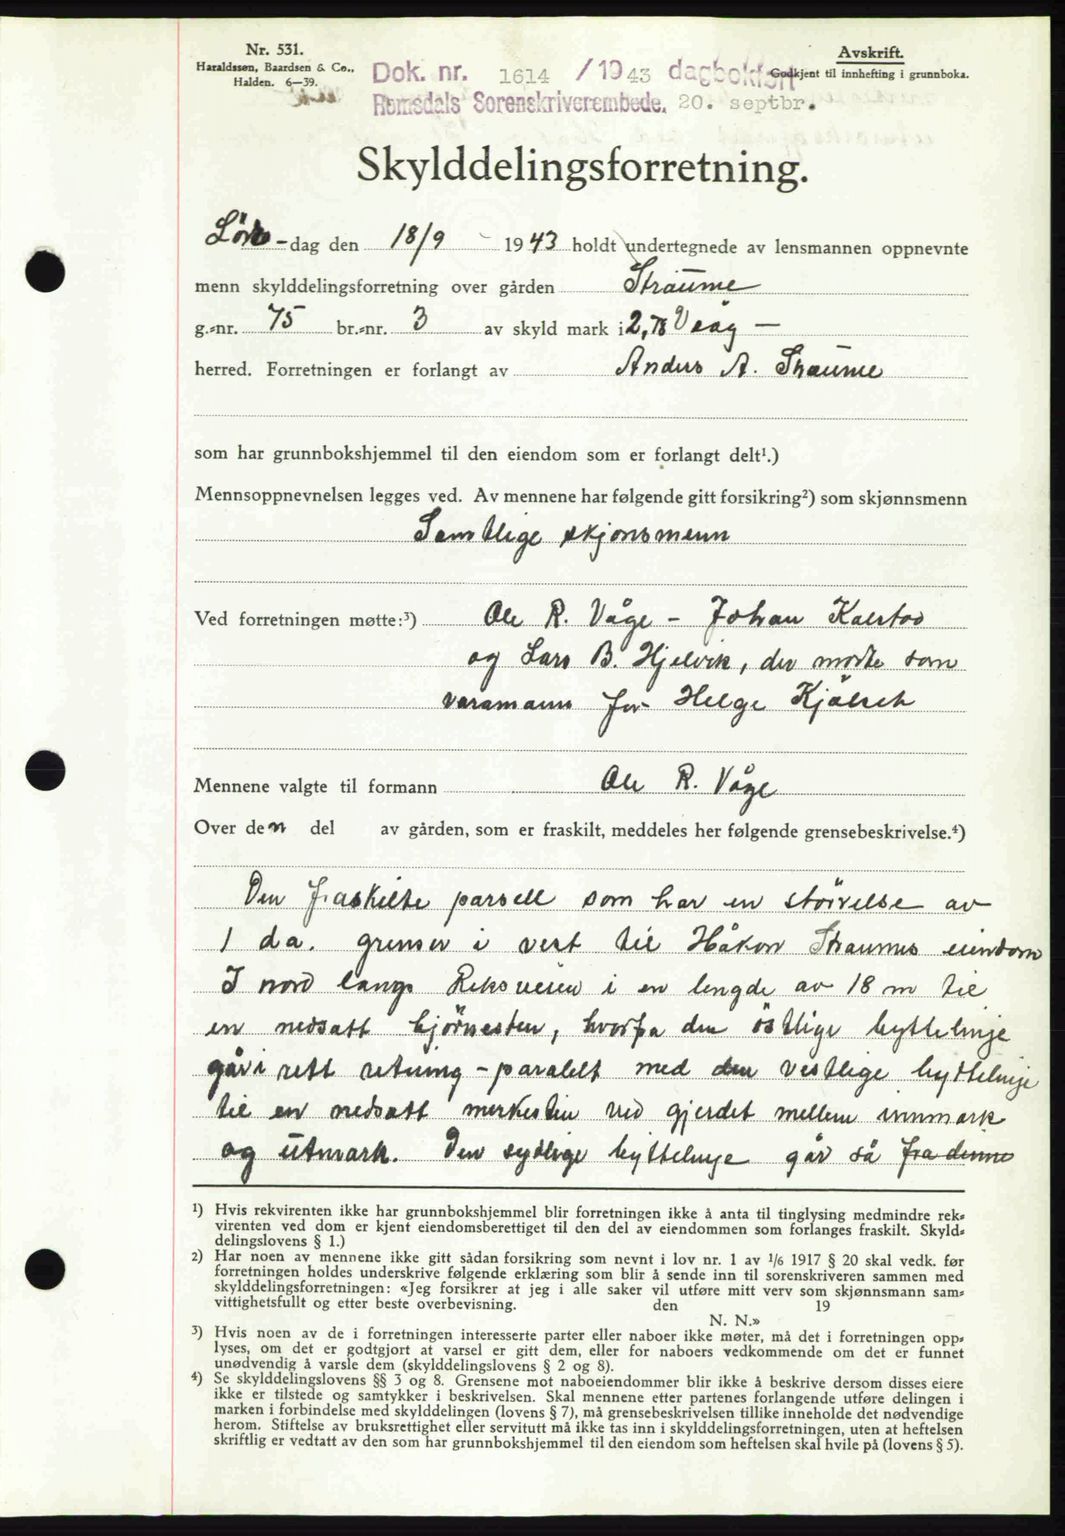 Nr. 531.
Haraldssøn, Baardsen & Co.,
Halden. 6—39.
Avskrift.
Godkjent til innhefting i grunnboka.
Dok. nr. 1614 /1943 dagbokført
Romsdals Sorenskriverembede, 20. septbr.
Skylddelingsforretning.
Lør-dag den 18/9 1943 holdt undertegnede av lensmannen oppnevnte
menn skylddelingsforretning over gården Straume
g.-nr. 75 br.-nr. 3 av skyld mark i 2,78 Veøy —
herred. Forretningen er forlangt av Anders A. Straume
som har grunnbokshjemmel til den eiendom som er forlangt delt¹.)
Mennsoppnevnelsen legges ved. Av mennene har følgende gitt forsikring²) som skjønnsmenn
Samtlige skjønsmenn
Ved forretningen møtte:³) Ole R. Våge – Johan Kalstad
og Lars B. Hjelvik, der møtte som
varamann for Helge
Mennene valgte til formann Ole R. Våge
Over den del av gården, som er fraskilt, meddeles her følgende grensebeskrivelse.⁴)
Den fraskilte parsell som har en størrelse av
1 da. grenser i vest til Håkon Straumes eiendom
I nord langs Riksveien i en lengde av 18 m til
en nedsatt hjørnesten, hvorfra den østlige byttelinje
går i rett retning – paralelt med den vestlige byttelinje
til en nedsatt merkesten ved gjerdet mellem innmark
og utmark. Den sydlige byttelinje går så fra denne
¹) Hvis rekvirenten ikke har grunnbokshjemmel blir forretningen ikke å anta til tinglysing medmindre rek-
virenten ved dom er kjent eiendomsberettiget til den del av eiendommen som forlanges fraskilt. Skyld-
delingslovens § 1.)
²) Har noen av mennene ikke gitt sådan forsikring som nevnt i lov nr. 1 av 1/6 1917 § 20 skal vedk. før
forretningen holdes underskrive følgende erklæring som blir å sende inn til sorenskriveren sammen med
skylddelingsforretningen: «Jeg forsikrer at jeg i alle saker vil utføre mitt verv som skjønnsmann sam-
vittighetsfullt og etter beste overbevisning. den 19
N. N.»
³) Hvis noen av de i forretningen interesserte parter eller naboer ikke møter, må det i forretningen opp-
lyses, om det er godtgjort at varsel er gitt dem, eller for naboers vedkommende om det er funnet
unødvendig å varsle dem (skylddelingslovens § 2 og 8).
⁴) Se skylddelingslovens §§ 3 og 8. Grensene mot naboeiendommer blir ikke å beskrive dersom disses eiere
ikke er tilstede og samtykker i beskrivelsen. Skal mennene etter partenes forlangende utføre delingen i
marken i forbindelse med skylddelingen (lovens § 7), må grensebeskrivelsen tillike inneholde det nødvendige
herom. Stiftelse av bruksrettighet eller servitutt må ikke tas inn i skylddelingsforretningen, uten at heftelsen
skriftlig er vedtatt av den som har grunnbokshjemmel til den eiendom som heftelsen skal hvile på (lovens § 5).